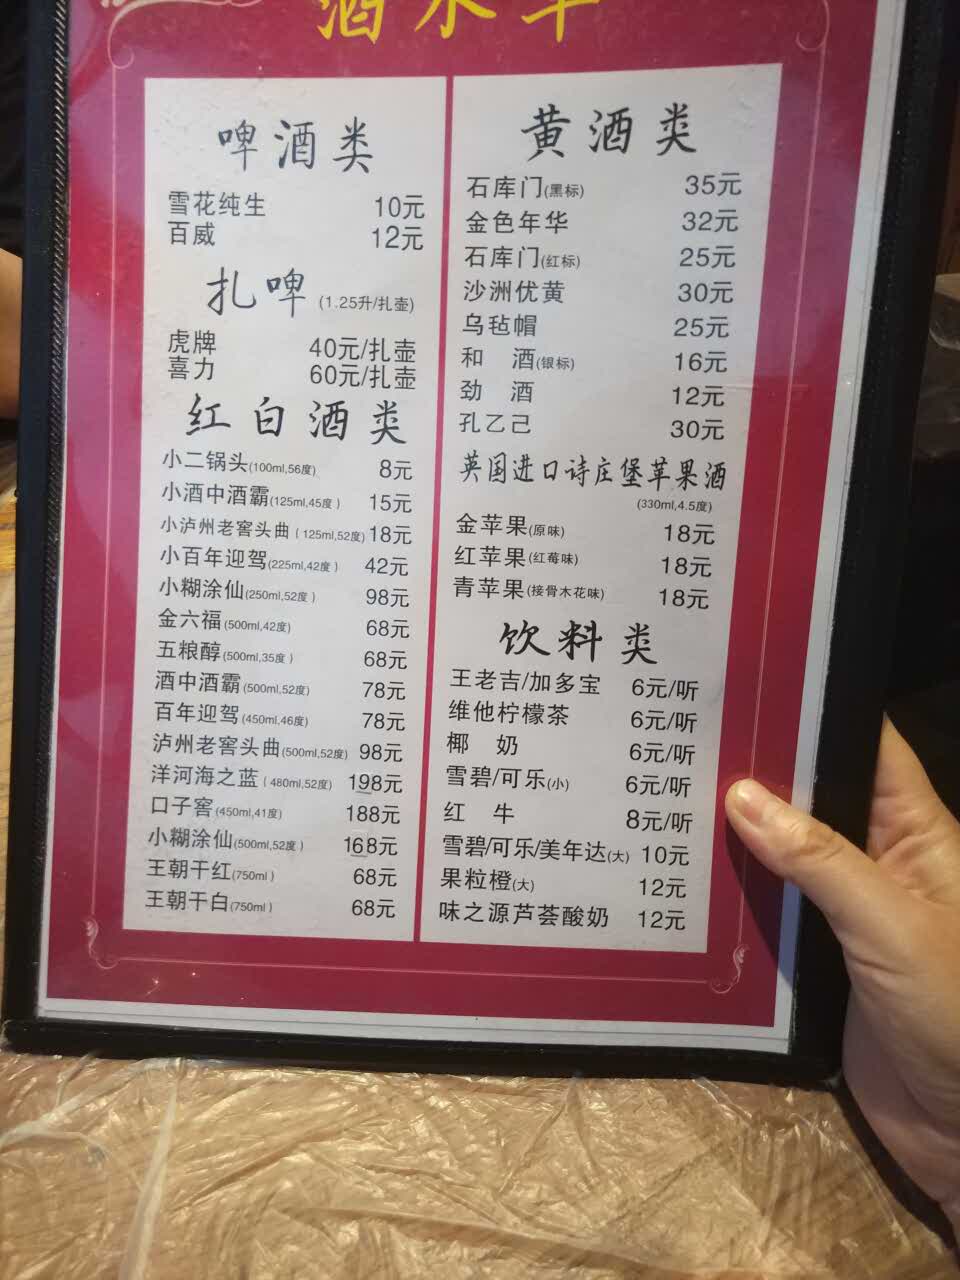 酒水单
啤酒类
雪花纯生 10元
百威 12元
扎啤 (1.25升/扎壶)
虎牌 40元/扎壶
喜力 60元/扎壶
红白酒类
小二锅头(100ml,56度) 8元
小酒中酒霸(125ml,45度) 15元
小泸州老窖头曲(125ml,52度) 18元
小百年迎驾(225ml,42度) 42元
小糊涂仙(250ml,52度) 98元
金六福(500ml,42度) 68元
五粮醇(500ml,35度) 68元
酒中酒霸(500ml,52度) 78元
百年迎驾(450ml,46度) 78元
泸州老窖头曲(500ml,52度) 98元
洋河海之蓝(480ml,52度) 198元
口子窖(450ml,41度) 188元
小糊涂仙(500ml,52度) 168元
王朝干红(750ml) 68元
王朝干白(750ml) 68元
黄酒类
石库门(黑标) 35元
金色年华 32元
石库门(红标) 25元
沙洲优黄 30元
乌毡帽 25元
和 酒(银标) 16元
劲 酒 12元
孔乙己 30元
英国进口诗庄堡苹果酒
(330ml,4.5度)
金苹果(原味) 18元
红苹果(红莓味) 18元
青苹果(接骨木花味) 18元
饮料类
王老吉/加多宝 6元/听
维他柠檬茶 6元/听
椰 奶 6元/听
雪碧/可乐(小) 6元/听
红 牛 8元/听
雪碧/可乐/美年达(大) 10元
果粒橙(大) 12元
味之源芦荟酸奶 12元